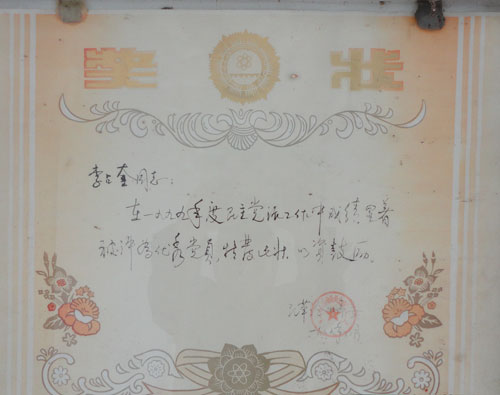 奖状
李占奎同志:
在一九九年度民主党派工作中成绩显著
被评为优秀党员,特发此状 以资鼓励。